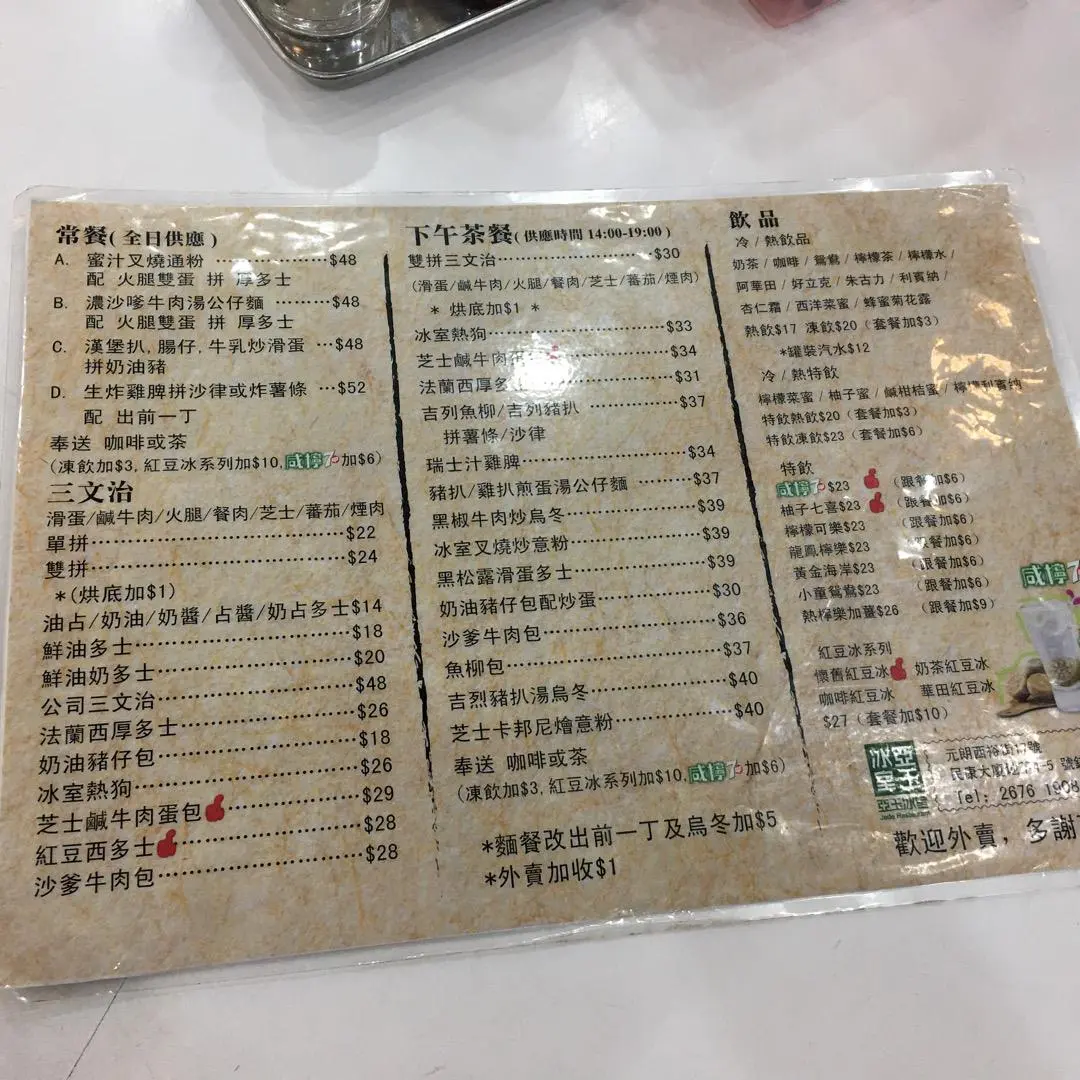 常餐( 全日供應 )
A. 蜜汁叉燒通粉 ………………$48
配 火腿雙蛋 拼 厚多士
B. 濃沙嗲牛肉湯公仔麵 ………$48
配 火腿雙蛋 拼 厚多士
C. 漢堡扒, 腸仔, 牛乳炒滑蛋 …$48
拼奶油豬
D. 生炸雞脾拼沙律或炸薯條 …$52
配 出前一丁
奉送 咖啡或茶
(凍飲加$3, 紅豆冰系列加$10, 咸檸7加$6)
三文治
滑蛋/鹹牛肉/火腿/餐肉/芝士/蕃茄/煙肉
單拼……………………………$22
雙拼……………………………$24
*(烘底加$1)
油占/奶油/奶醬/占醬/奶占多士$14
鮮油多士………………………$18
鮮油奶多士……………………$20
公司三文治……………………$48
法蘭西厚多士…………………$26
奶油豬仔包……………………$18
冰室熱狗………………………$26
芝士鹹牛肉蛋包………………$29
紅豆西多士……………………$28
沙爹牛肉包……………………$28
下午茶餐( 供應時間 14:00-19:00 )
雙拼三文治……………………$30
(滑蛋/鹹牛肉/火腿/餐肉/芝士/蕃茄/煙肉)
* 烘底加$1 *
冰室熱狗………………………$33
芝士鹹牛肉蛋 ………………$34
法蘭西厚多士…………………$31
吉列魚柳/吉列豬扒 …………$37
拼薯條/沙律
瑞士汁雞脾……………………$34
豬扒/雞扒煎蛋湯公仔麵 ……$37
黑椒牛肉炒烏冬………………$39
冰室叉燒炒意粉………………$39
黑松露滑蛋多士………………$39
奶油豬仔包配炒蛋……………$30
沙爹牛肉包……………………$36
魚柳包…………………………$37
吉烈豬扒湯烏冬………………$40
芝士卡邦尼燴意粉……………$40
奉送 咖啡或茶
(凍飲加$3, 紅豆冰系列加$10, 咸檸7加$6)
*麵餐改出前一丁及烏冬加$5
*外賣加收$1
飲品
冷 / 熱飲品
奶茶 / 咖啡 / 鴛鴦 / 檸檬茶 / 檸檬水 /
阿華田 / 好立克 / 朱古力 / 利賓納 /
杏仁霜 / 西洋菜蜜 / 蜂蜜菊花露
熱飲$17 凍飲$20 (套餐加$3)
*罐裝汽水$12
冷 / 熱特飲
檸檬菜蜜 / 柚子蜜 / 鹹柑桔蜜 / 檸檬利賓納
特飲熱飲$20 (套餐加$3)
特飲凍飲$23 (套餐加$6)
特飲
咸檸7 $23 (跟餐加$6)
柚子七喜$23 (跟餐加$6)
檸檬可樂$23 (跟餐加$6)
龍鳳檸樂$23 (跟餐加$6)
黃金海岸$23 (跟餐加$6)
小童鴛鴦$23 (跟餐加$6)
熱檸樂加薑$26 (跟餐加$9)
咸檸7
紅豆冰系列
懷舊紅豆冰 奶茶紅豆冰
咖啡紅豆冰 華田紅豆冰
$27 (套餐加$10)
亞玉冰室
亞玉冰室
Jade Restaurant
元朗西裕街17號
民康大廈地下1-5 號舖
Tel: 2676 1908
歡迎外賣, 多謝